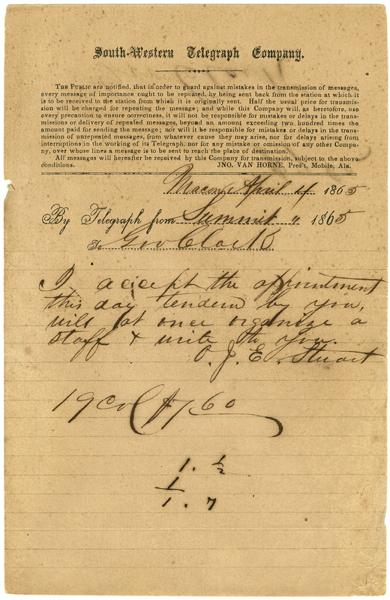 South-Western Telegraph Company.
THE PUBLIC are notified, that in order to guard against mistakes in the transmission of messages,
every message of importance ought to be repeated, by being sent back from the station at which it
is to be received to the station from which it is originally sent. Half the usual price for transmis-
sion will be charged for repeating the message; and while this Company will, as heretofore, use
every precaution to ensure correctness, it will not be responsible for mistakes or delays in the trans-
missions or delivery of repeated messages, beyond an amount exceeding two hundred times the
amount paid for sending the message; nor will it be responsible for mistakes or delays in the transmission
of unrepeated messages, from whatever cause they may arise, nor for delays arising from
interruptions in the working of its Telegraph; nor for any mistake or omission of any other Company,
over whose lines a message is to be sent to reach the place of destination.
All messages will hereafter be received by this Company for transmission, subject to the above
conditions. JNO. VAN HORNE, Pres't, Mobile, Ala.
Macon, April 4 1865
By Telegraph from Summit 4 1865
To Gov Clark
I accept the appointment
this day tendered by you,
will at once organize a
staff & write to you.
O. J. E. Stuart
19 Col $7 60
1. ½
1
1. 7